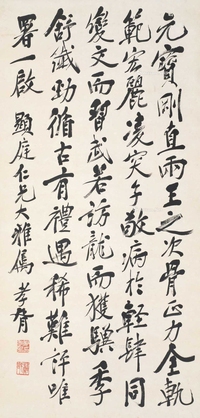 元寶剛直兩王之次骨正力全軌
範宏麗凌突子敬病於輕肆同
變文而習武若訪龍而獲驥季
舒纖勁循古有禮遇稀難評唯
署一啟 顯庭仁兄大雅屬 孝胥